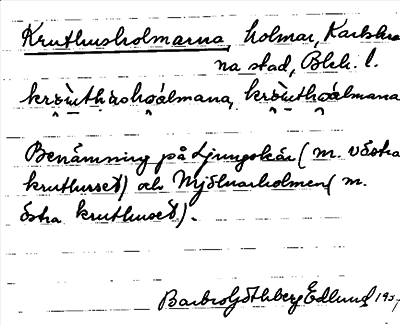 Kruthusholmarna, holmar, Karlskro
na stad, Blek. l.
krùthùshoálmana, krùthoálmana
Benämning på Ljungskär (m. västra
kruthuset) och Mjölnarholmen (m.
östra kruthuset).
Barbro Göthberg Edlund 195